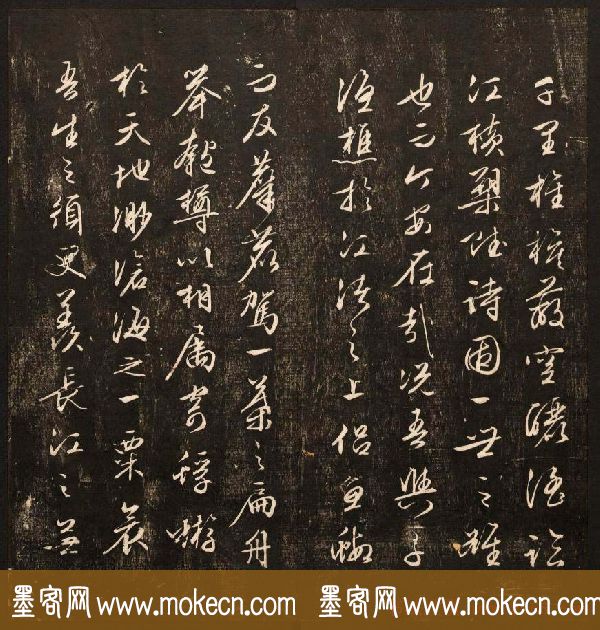 千里旌旗蔽空釃酒臨
江橫槊賦詩固一世之雄
也而今安在哉況吾與子
漁樵於江渚之上侶魚蝦
而友麋鹿駕一葉之扁舟
舉匏樽以相屬寄蜉蝣
於天地渺滄海之一粟哀
吾生之須臾羨長江之無
墨客网 www.mokecn.com 墨客网 www.mokecn.com